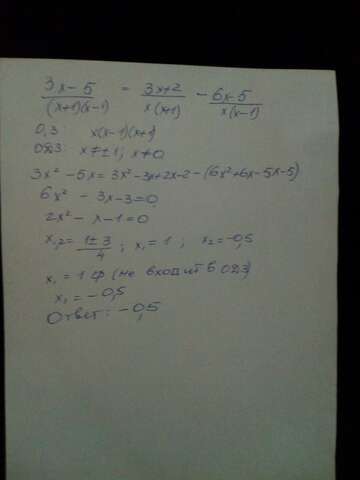 (3x-5)/((x+1)(x-1)) = (3x+2)/(x(x+1)) - (6x-5)/(x(x-1))
О,З: x(x-1)(x+1)
ОДЗ: x≠±1; x≠0
3x² -5x = 3x² -3x+2x-2-(6x²+6x-5x-5)
6x² -3x-3=0
2x² -x-1=0
x₁,₂= (1±3)/4 ; x₁=1 ; x₂=-0,5
x₁ = 1 ф (не входит в ОДЗ)
x₁ = -0,5
Ответ: -0,5